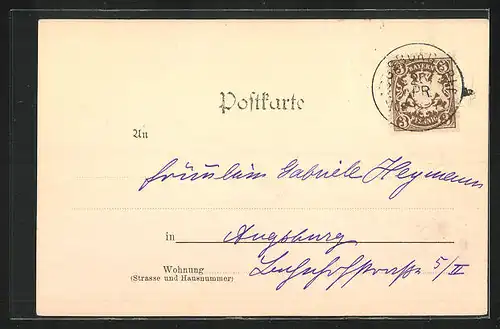 BAYERN
3 3
PR.
3 3
Postkarte
An
Fräulein Gabriele Heymann
in Augsburg
Wohnung
(Strasse und Hausnummer) 5/II